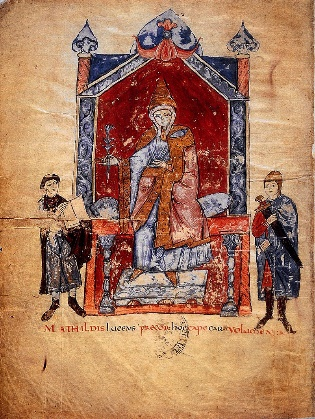 MATHILDIS lucens precor hoc cape cara volumen